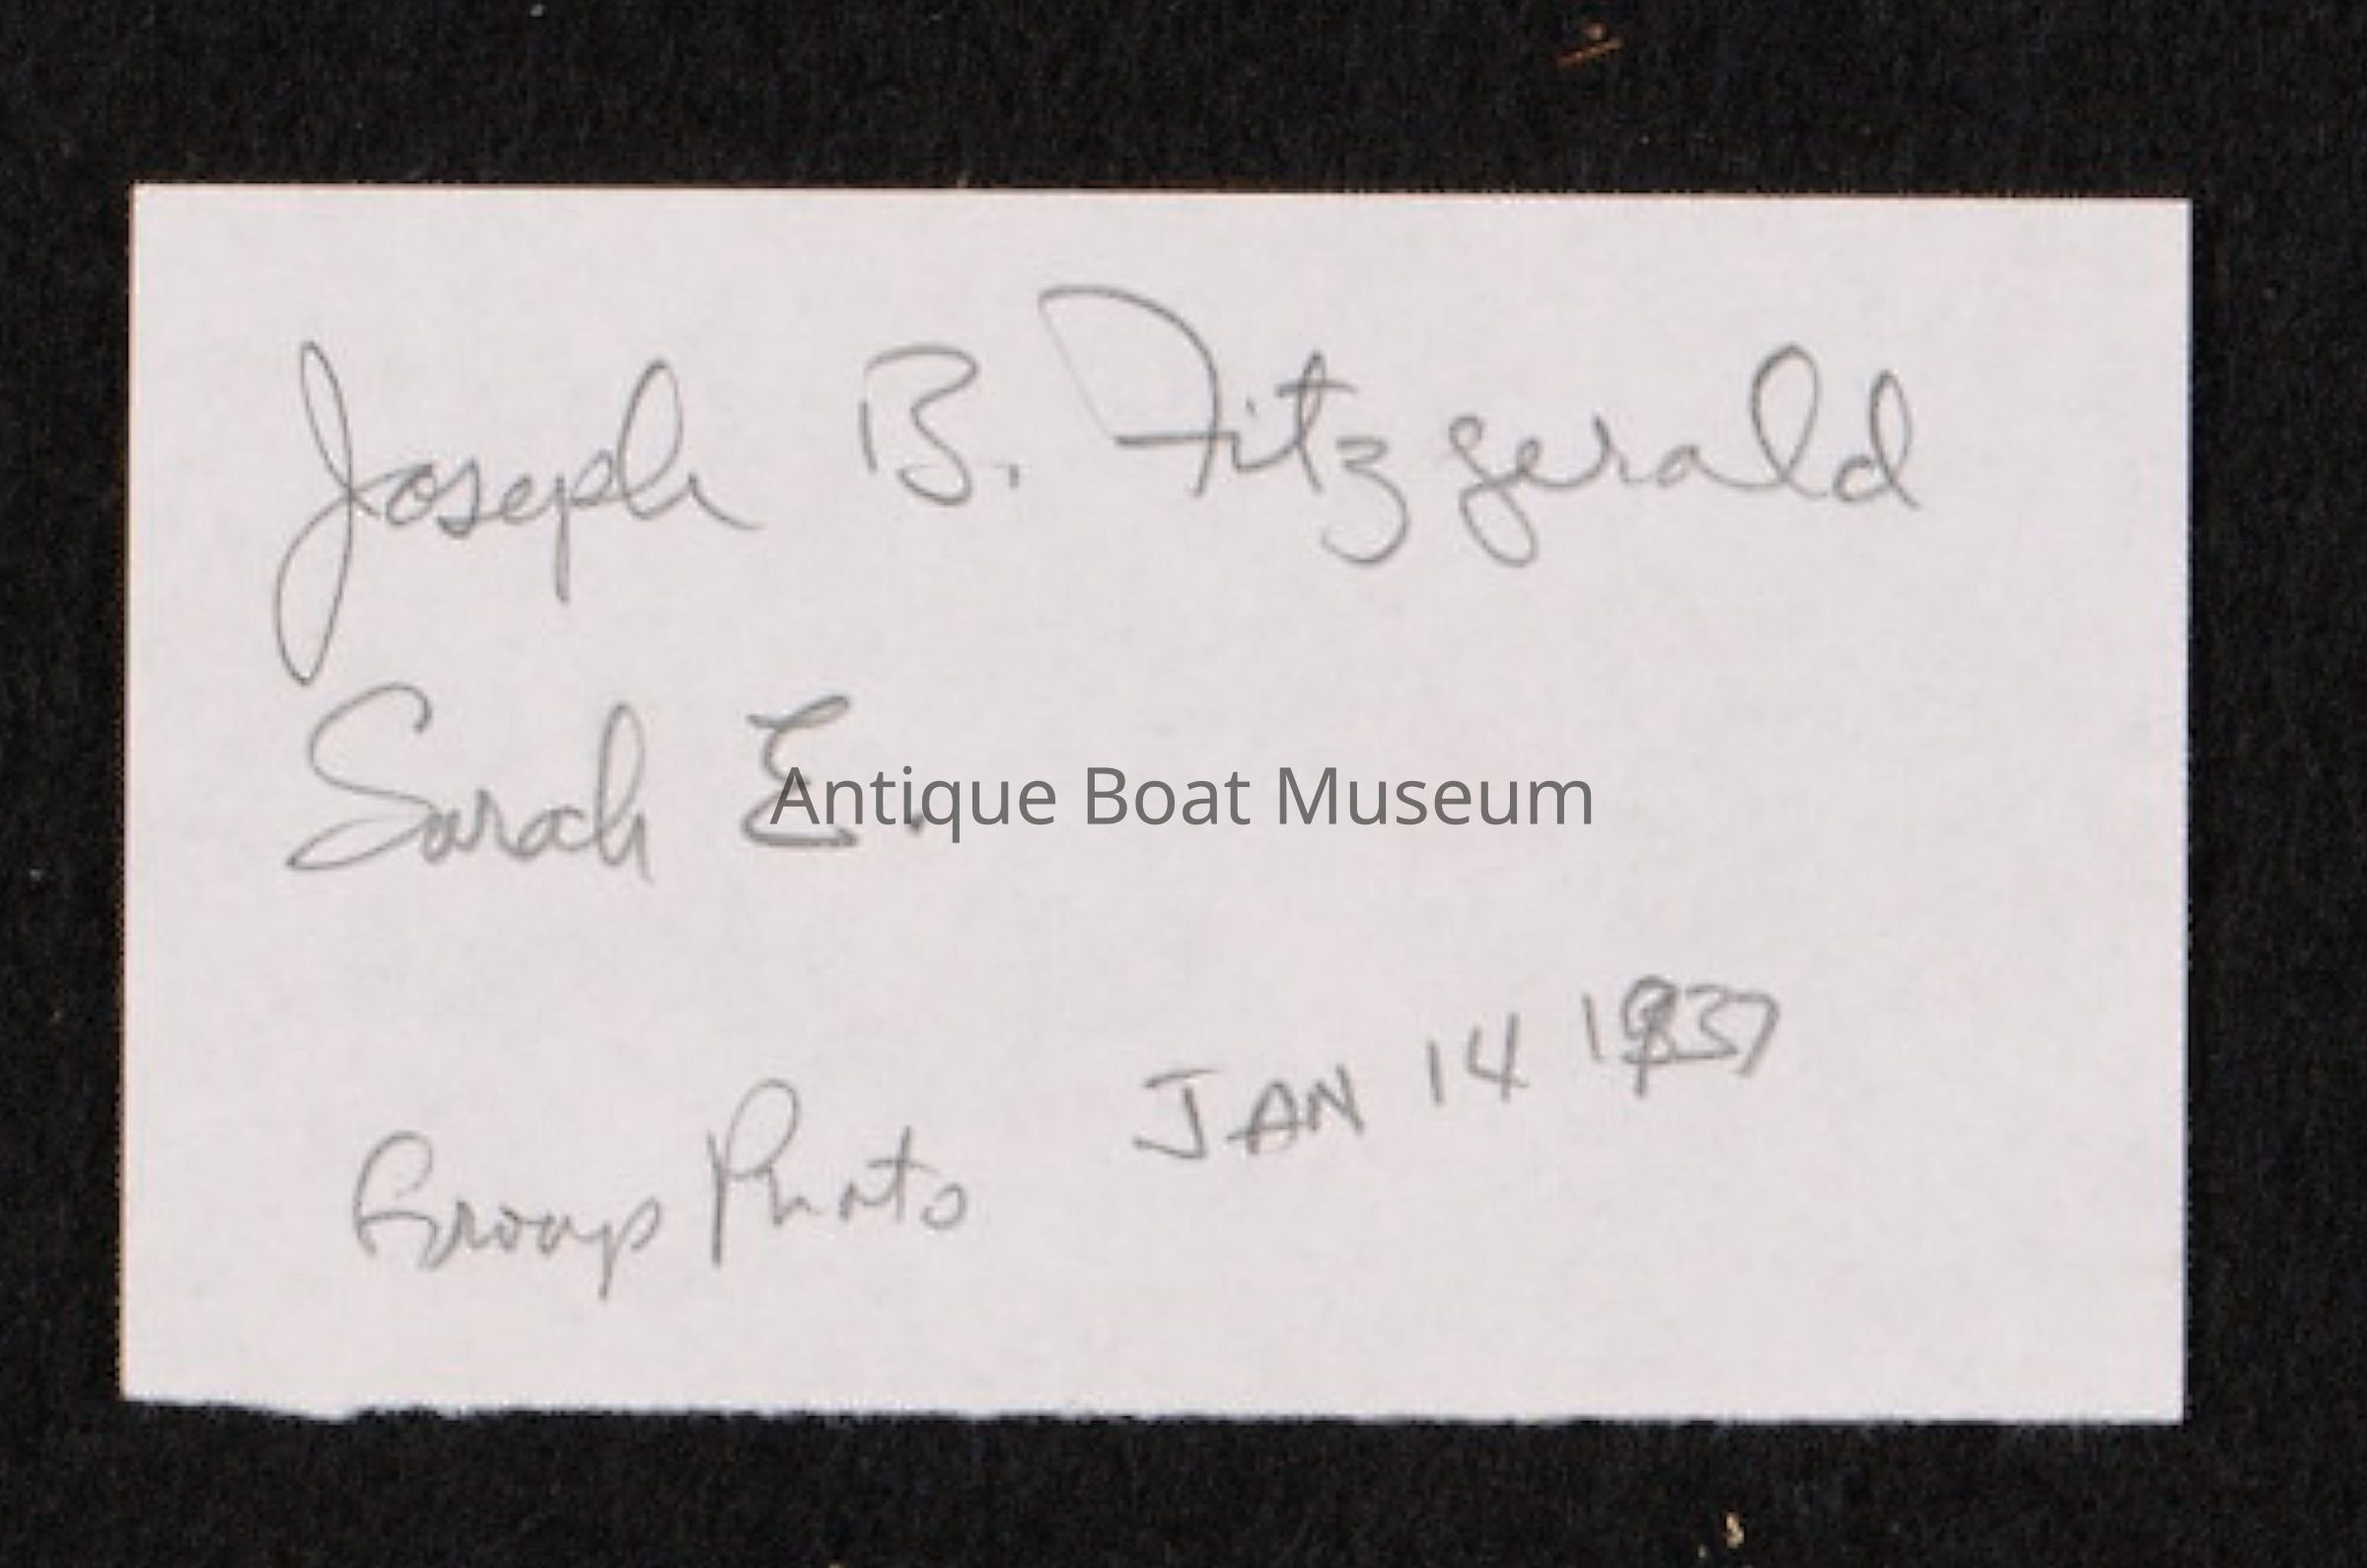 Joseph B. Fitzgerald
Sarah E.
Antique Boat Museum
JAN 14 1937
Group Photo